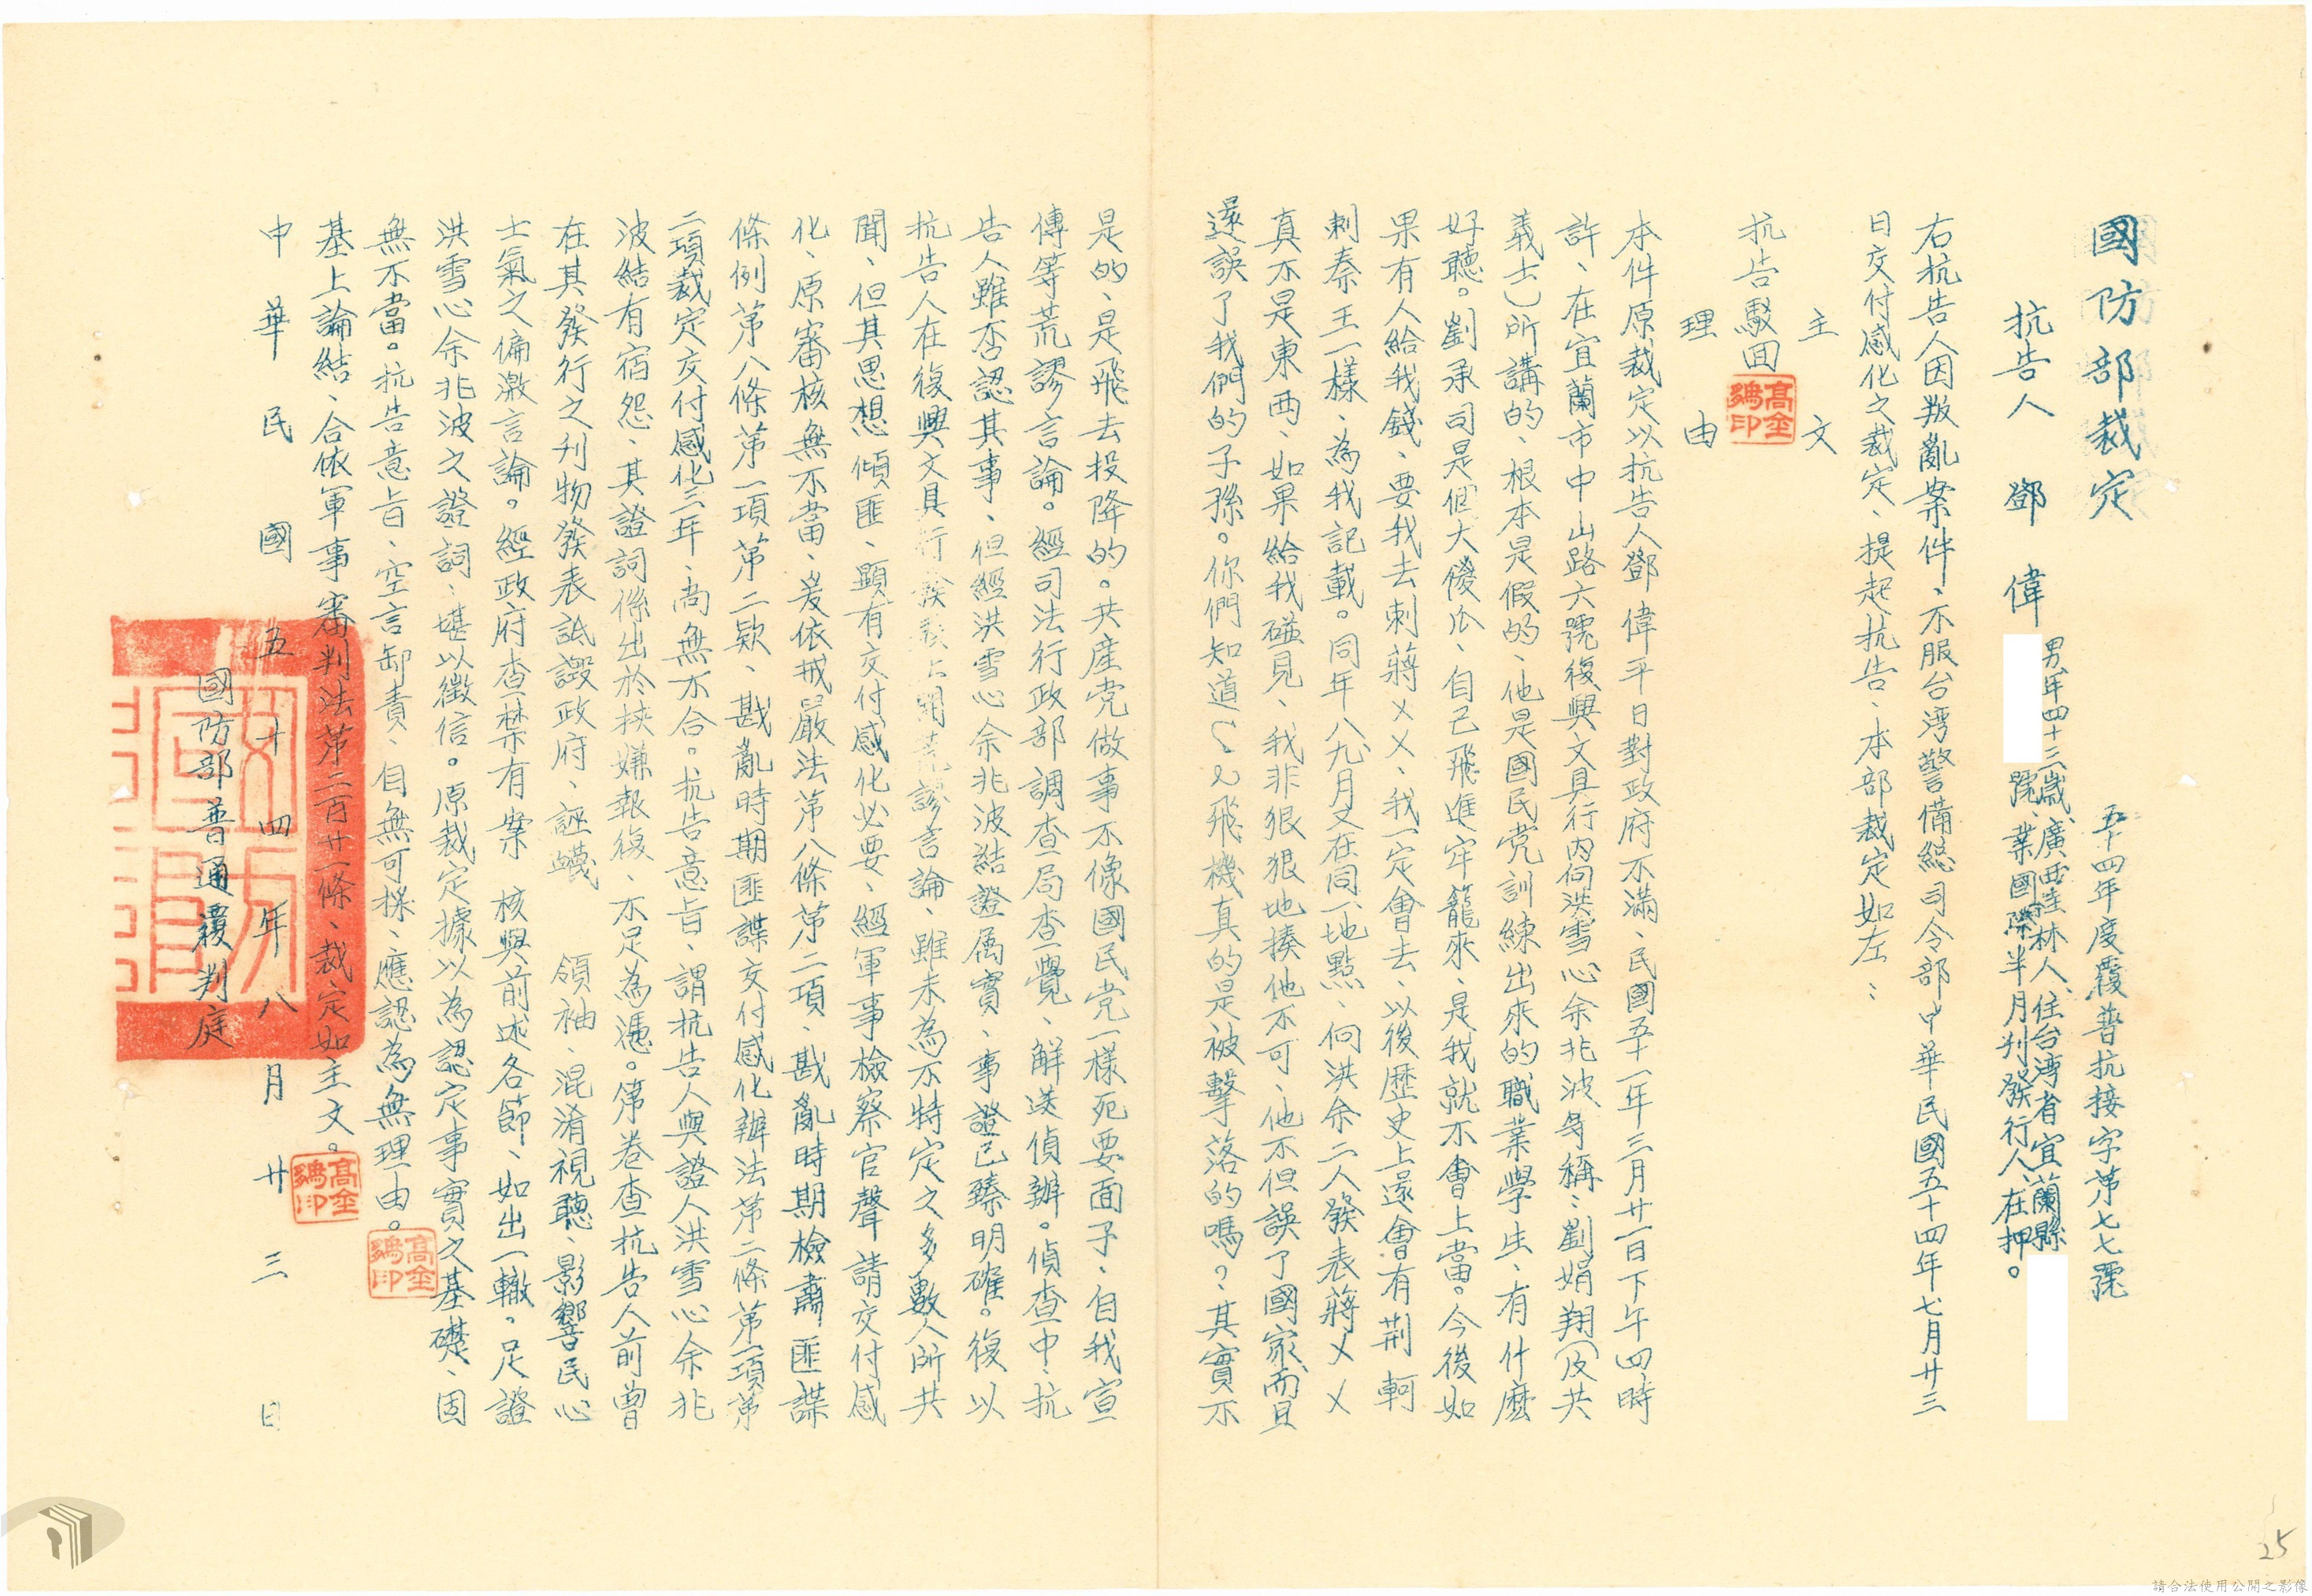 國防部裁定
五十四年度覆普抗接字第七七號
抗告人 鄧偉
男、年四十三歲、廣西桂林人、住台湾省宜蘭縣
號、業國際半月刊發行人、在押。
右抗告人因叛亂案件、不服台湾警備総司令部中華民國五十四年七月廿三
日交付感化之裁定、提起抗告、本部裁定如左：
主文
抗告駁回
理由
本件原裁定以抗告人鄧偉平日對政府不滿、民國五十一年三月廿一日下午四時
許、在宜蘭市中山路六號復興文具行内向洪雪心余兆波等稱：劉娟翔（反共
義士）所講的、根本是假的、他是國民党訓練出來的職業學生、有什麽
好聽。劉承司是個大傻瓜、自己飛進牢籠來、是我就不會上當。今後如
果有人給我錢、要我去刺蔣乂乂、我一定會去、以後歷史上還會有荆軻
刺秦王一樣、為我記載。同年八九月又在同一地點、向洪余二人發表蔣乂乂
真不是東西、如果給我碰見、我非狠狠地揍他不可、他不但誤了國家、而且
還誤了我們的子孫。你們知道飛機真的是被擊落的嗎？其實不
是的、是飛去投降的。共産党做事不像國民党一樣死要面子、自我宣
傳等荒謬言論。經司法行政部調查局查覺、解送偵辦。偵查中、抗
告人雖否認其事、但經洪雪心余兆波結證属實、事證已臻明確。復以
抗告人在復興文具行發表上開荒謬言論、雖未為不特定之多數人所共
聞、但其思想傾匪、顯有交付感化必要、經軍事檢察官聲請交付感
化、原審核無不當、爰依戒嚴法第八條第二項、戡亂時期檢肅匪諜
條例第八條第一項第二款、戡亂時期匪諜交付感化辦法第二條第一項第
二項裁定交付感化三年、尚無不合。抗告意旨、謂抗告人與證人洪雪心余兆
波結有宿怨、其證詞係出於挾嫌報復、不足為憑。第卷查抗告人前曾
在其發行之刊物發表詆譭政府、誣衊 領袖、混淆視聽、影響民心
士氣之偏激言論。經政府查禁有案 核與前述各節、如出一轍。足證
洪雪心余兆波之證詞、堪以徵信。原裁定據以為認定事實之基礎、固
無不當。抗告意旨、空言卸責、自無可採、應認為無理由。
基上論結、合依軍事審判法第二百廿一條、裁定如主文。
中華民國五十四年八月廿三日
國防部普通覆判庭
25
請合法使用公開之影像